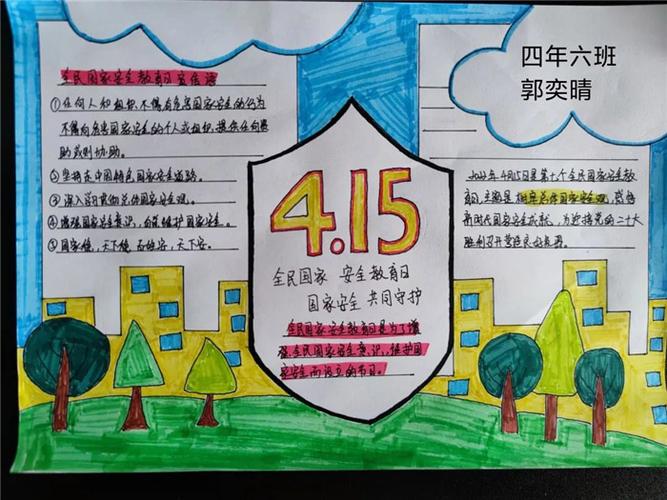 四年六班
郭奕晴
全民国家安全教育日宣传语
①任何人和组织不得有危害国家安全的行为
不得向危害国家安全的个人或组织提供任何资
助或协助。
②坚持走中国特色国家安全道路。
③深入学习贯彻总体国家安全观。
④增强国家安全意识,自觉维护国家安全。
⑤国家健,天下健 百姓安,天下安。
4.15
全民国家 安全教育日
国家安全 共同守护
全民国家安全教育日是为了增
强全民国家安全意识,维护国
家安全而设立的节日。
2022年4月15日是第七个全民国家安全教
育日,主题是树牢总体国家安全观,感悟
新时代国家安全成就,为迎接党的二十大
胜利召开营造良好氛围。